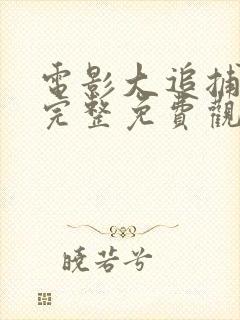 電影大追捕
完整免費觀
曉若兮